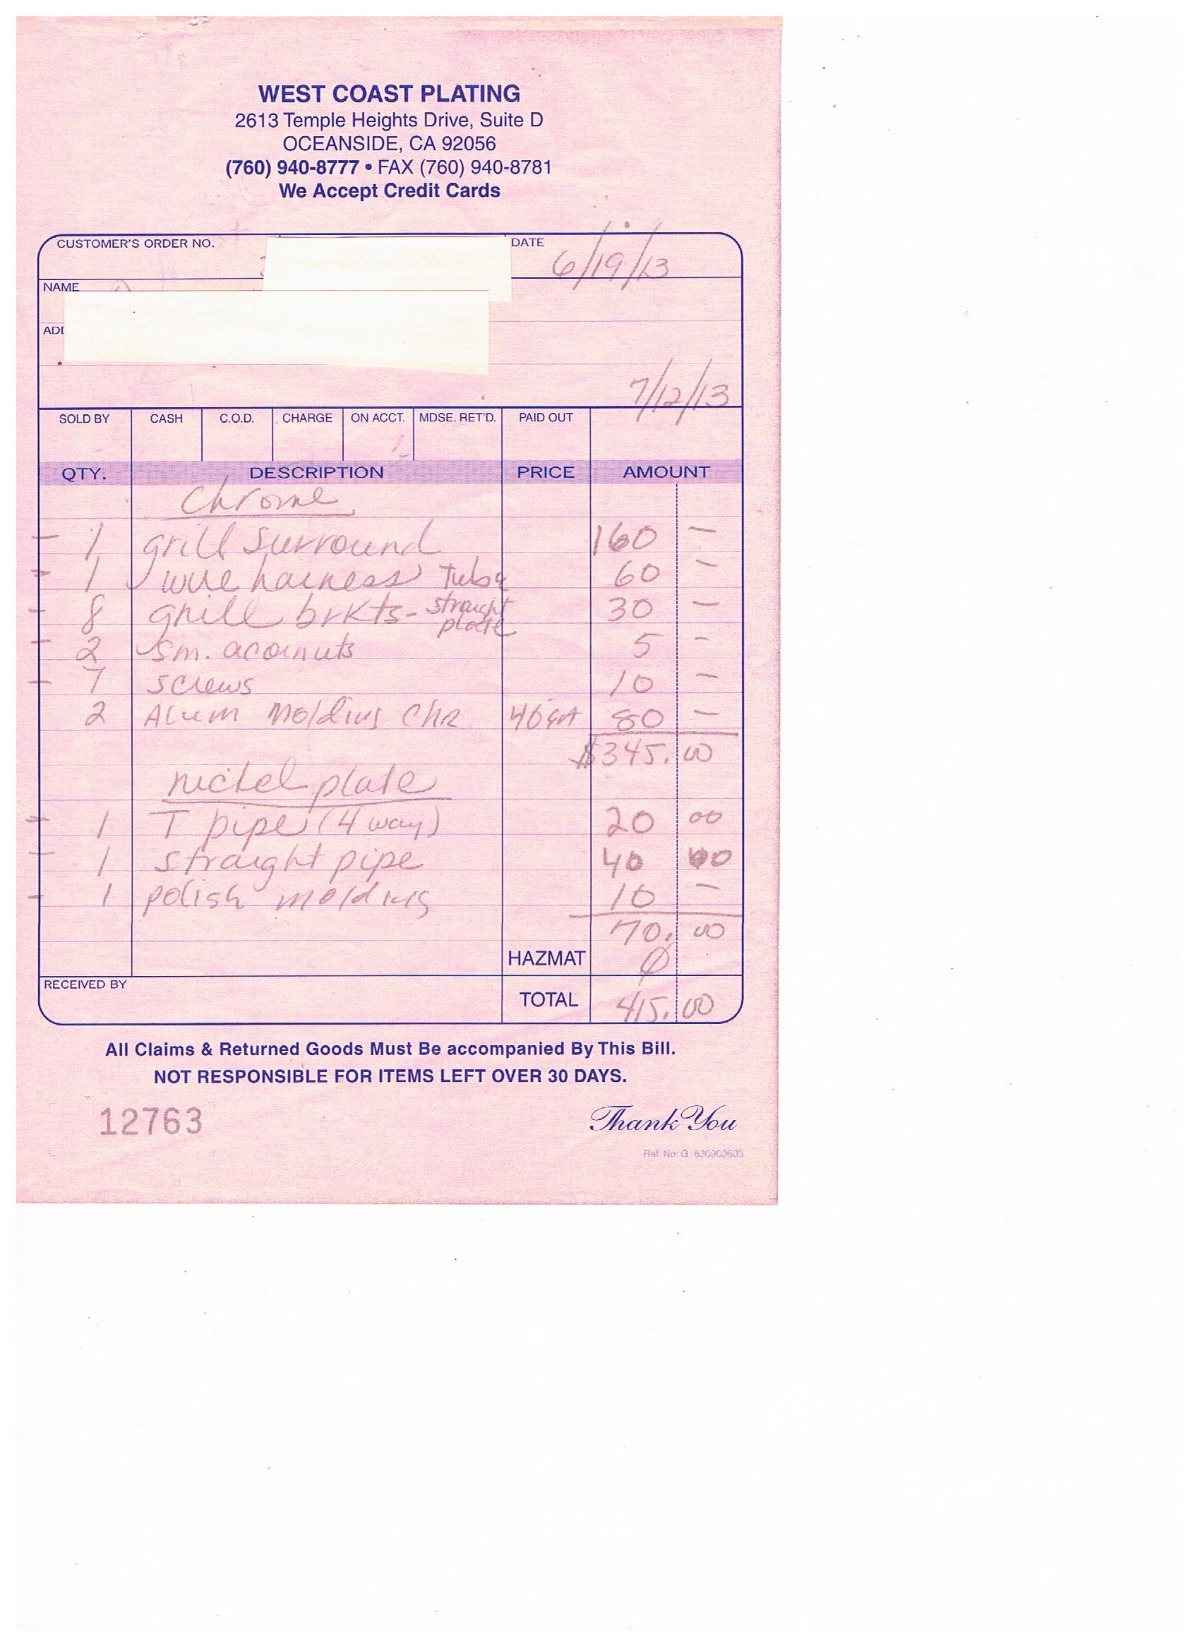 WEST COAST PLATING
2613 Temple Heights Drive, Suite D
OCEANSIDE, CA 92056
(760) 940-8777 • FAX (760) 940-8781
We Accept Credit Cards
CUSTOMER'S ORDER NO. DATE 6/19/13
NAME
7/12/13
SOLD BY CASH C.O.D. CHARGE ON ACCT. MDSE. RET'D. PAID OUT
QTY. DESCRIPTION PRICE AMOUNT
Chrome
- 1 grill surround 160 -
- 1 wire harness tube 60 -
- 8 grill brkts - straight plate 30 -
- 2 sm. acornuts 5 -
- 7 screws 10 -
2 Alum Molding Chr 40 ea 80 -
$345.00
nickel plate
- 1 T pipe (4 way) 20 00
- 1 straight pipe 40 00
- 1 polish molding 10 -
70.00
HAZMAT 0
RECEIVED BY TOTAL 415.00
All Claims & Returned Goods Must Be accompanied By This Bill.
NOT RESPONSIBLE FOR ITEMS LEFT OVER 30 DAYS.
12763 Thank You
Ref. No. G